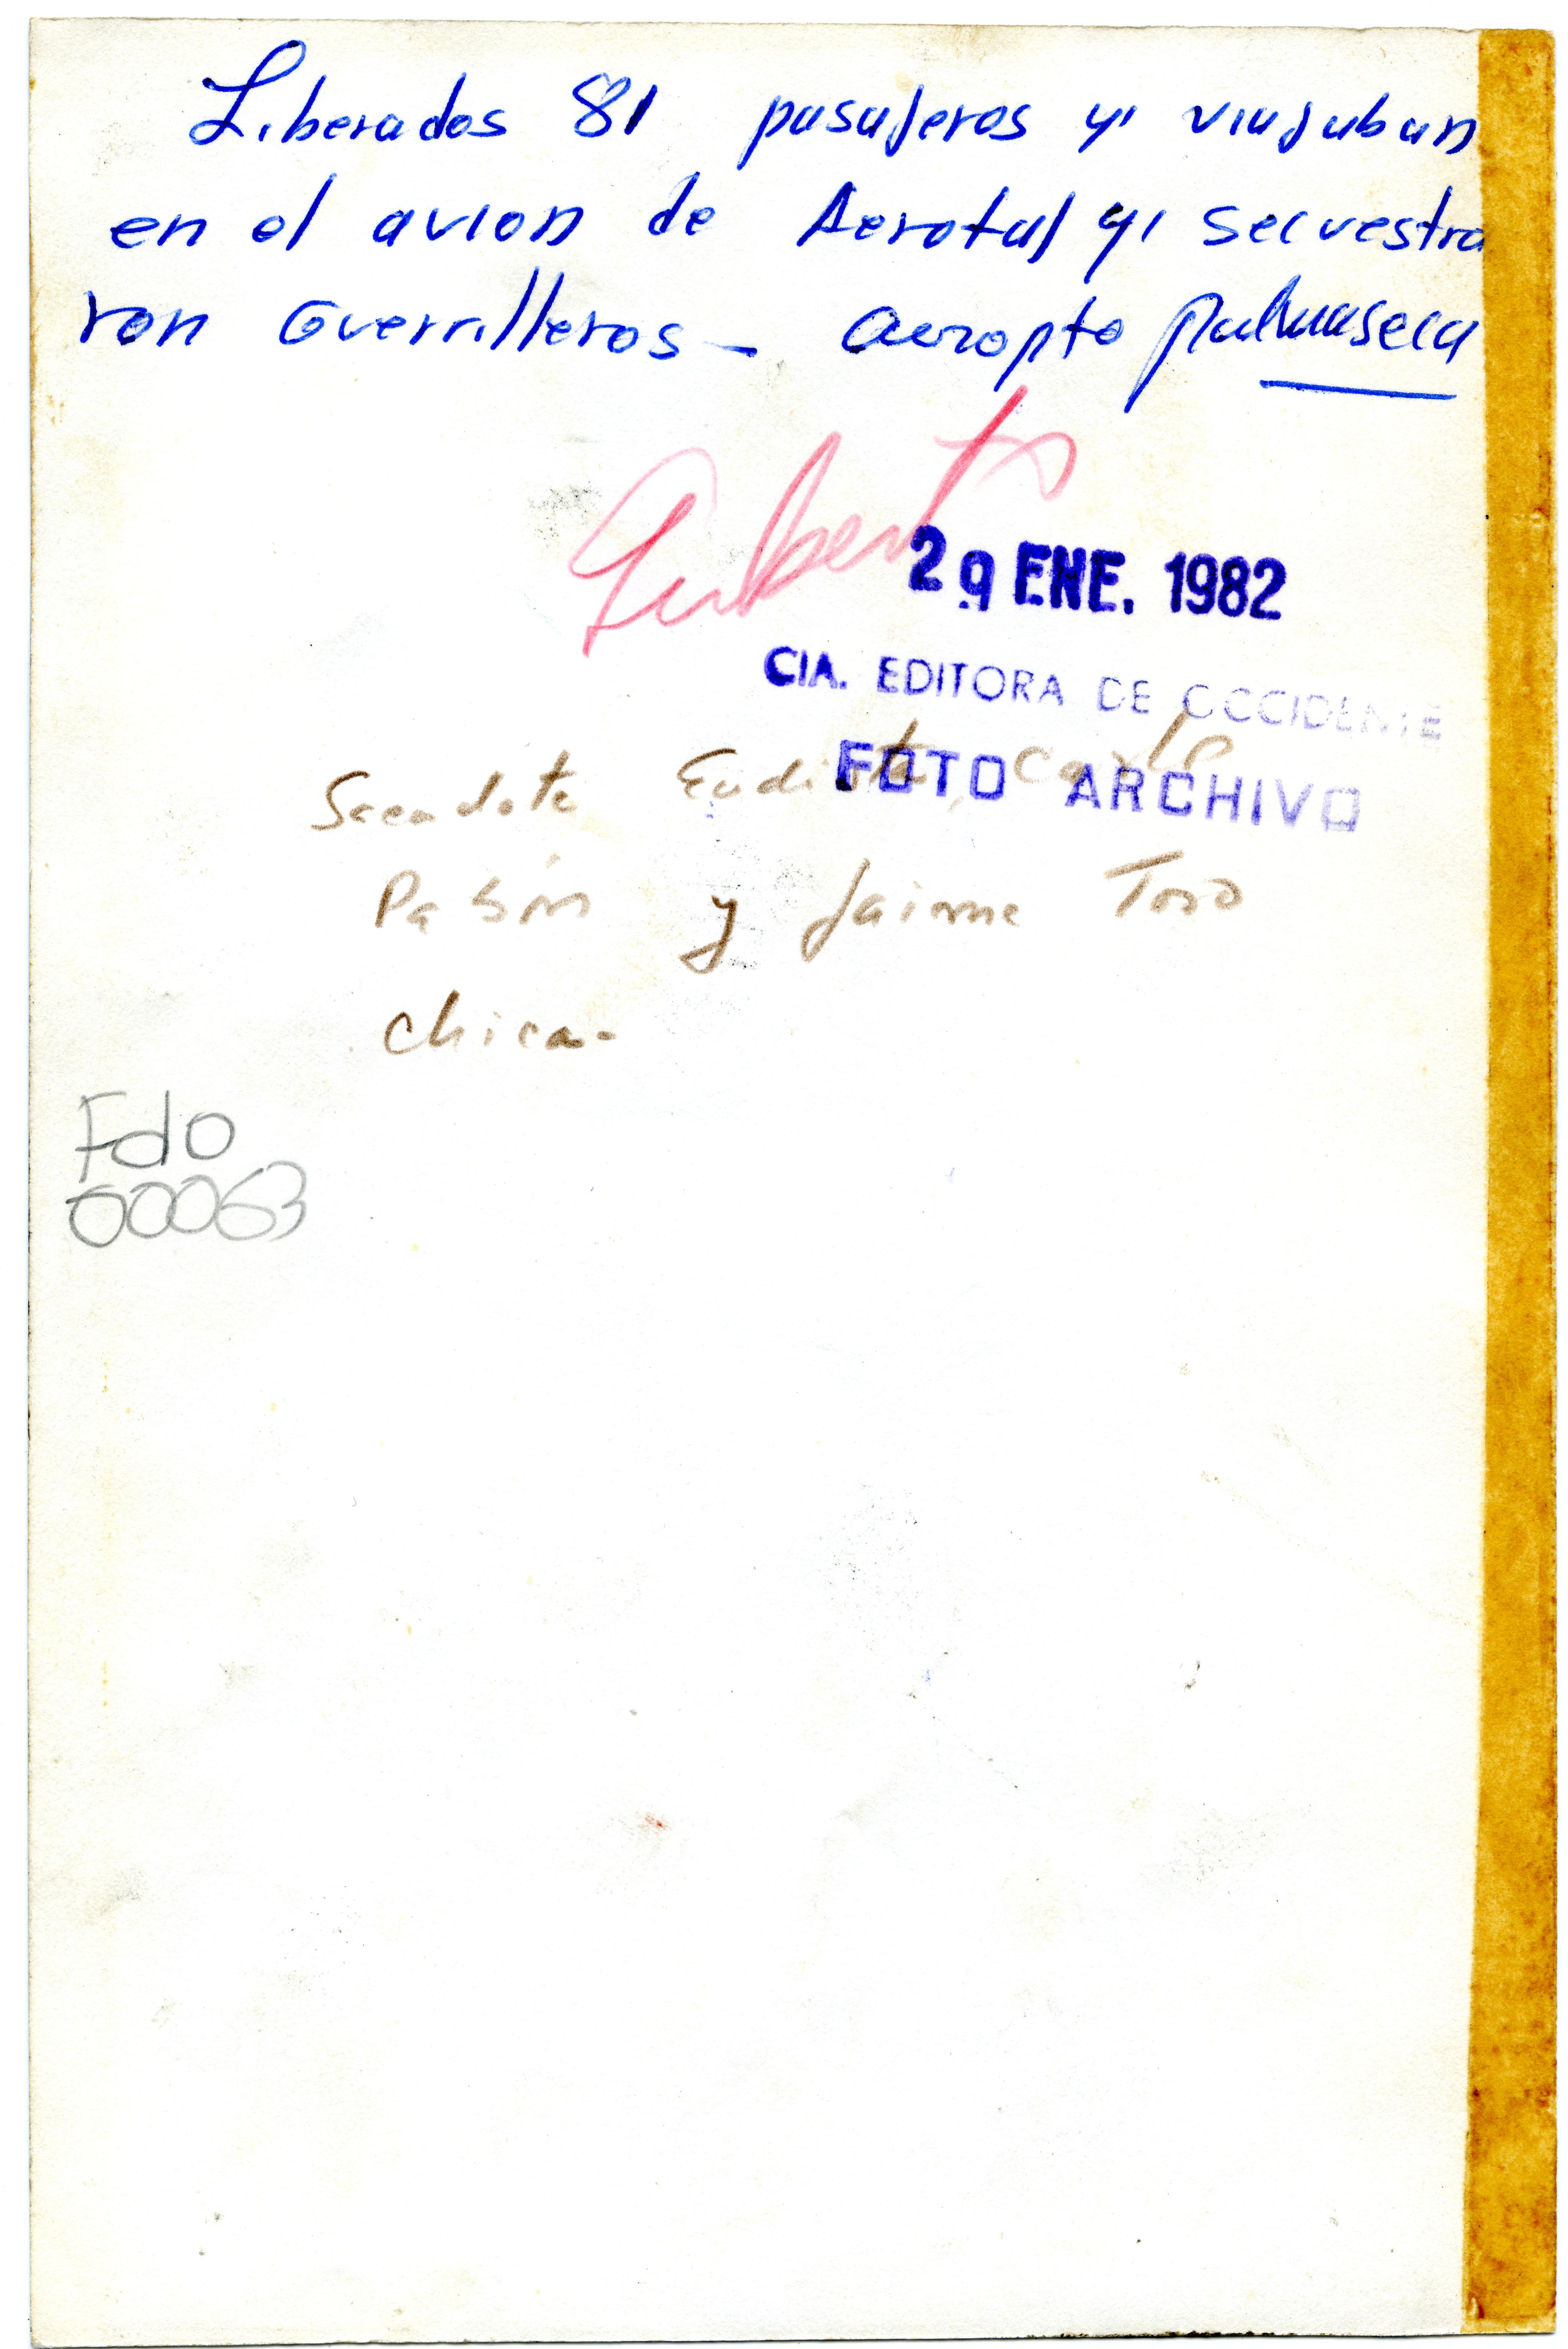 Liberados 81 pasajeros q' viajaban
en el avion de Aerotal q' secuestra
ron Guerrilleros - aeropto palmaseca
29 ENE. 1982
CIA. EDITORA DE OCCIDENTE
FOTO ARCHIVO
Sacerdote Eudista, Carlo
Pabón y Jaime Toro
Chica-
Fdo
00063